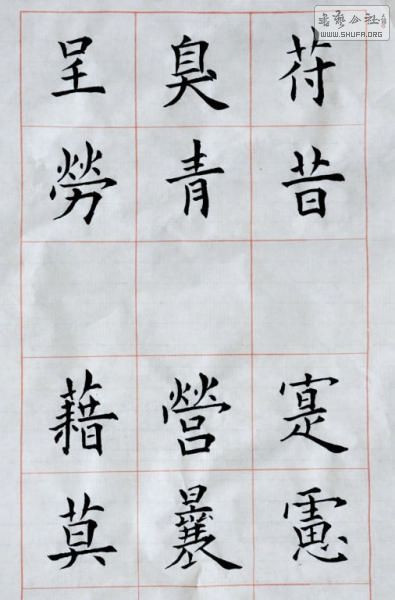 書藝公社
WWW.SHUFA.ORG
苻昔寔
臭青營曩
呈勞藉莫